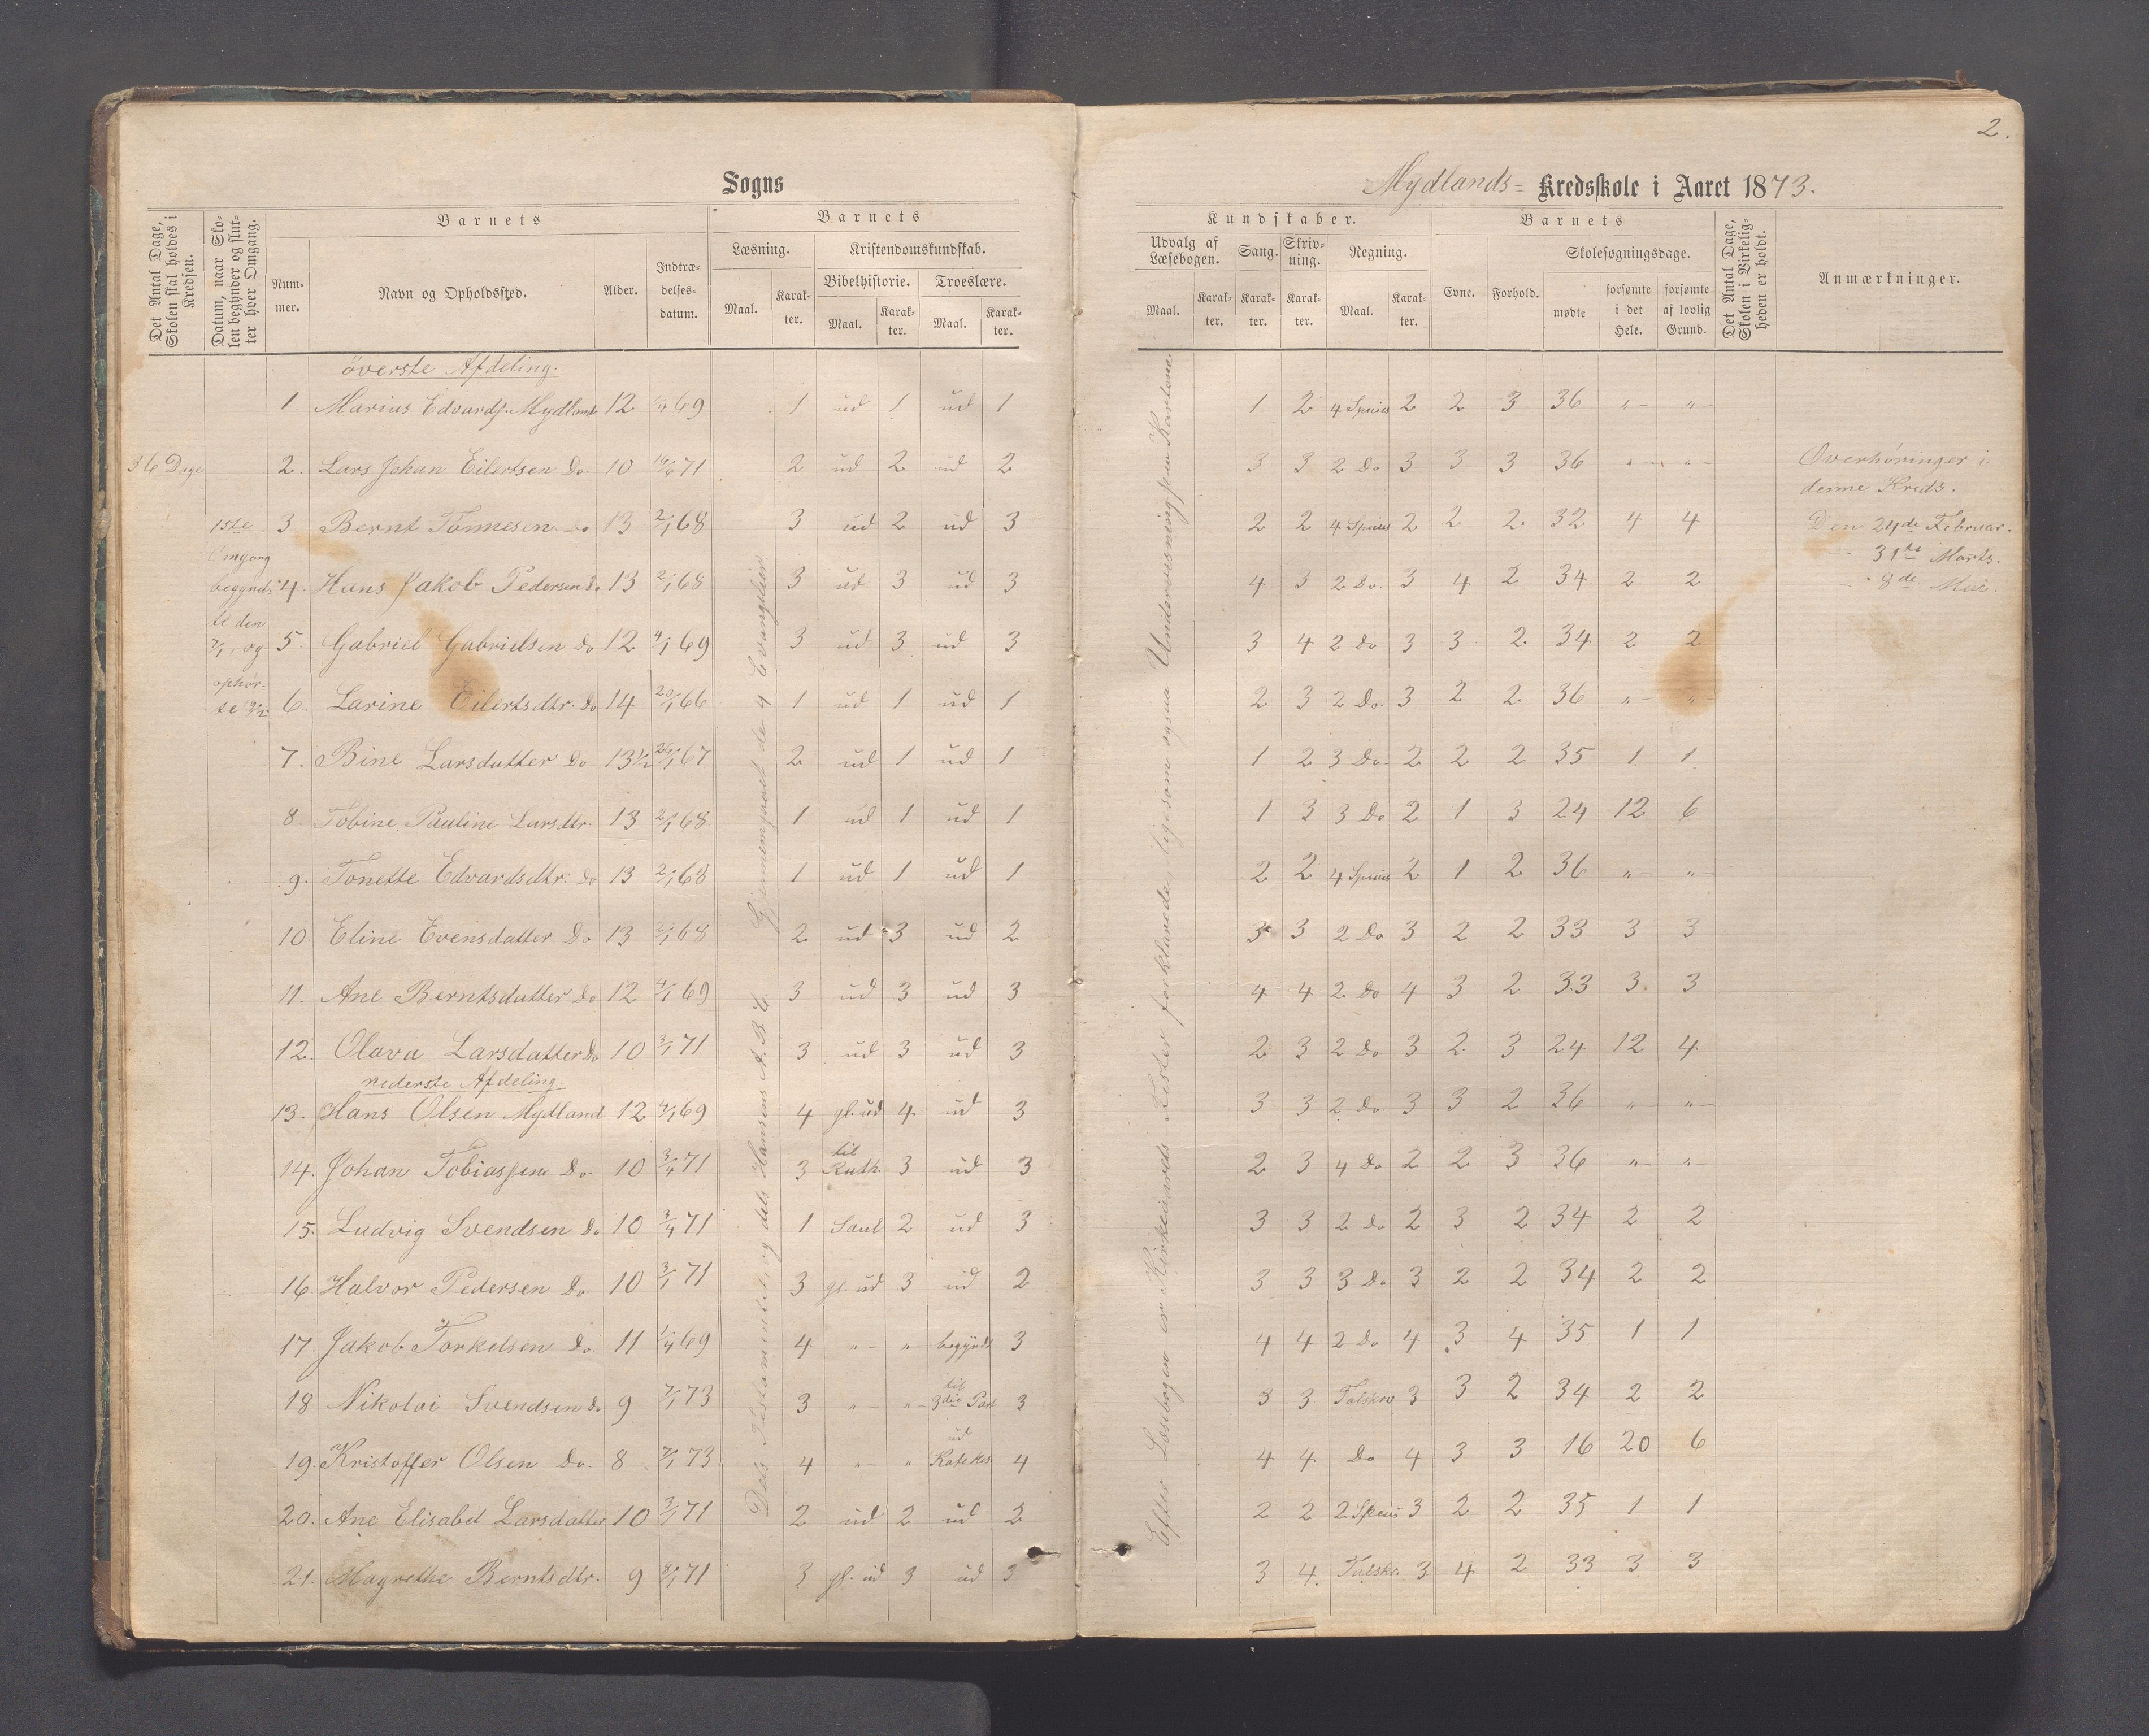 2.
Sogns
Mydlands= Kredsskole i Aaret 1873.
Det Antal Dage, Skolen skal holdes i Kredsen.
Datum, naar Skolen begynder og slutter hver Omgang.
Barnets
Nummer.
Navn og Opholdssted.
Alder.
Indtrædelsesdatum.
Barnets
Læsning.
Kristendomskundskab.
Bibelhistorie. Troeslære.
Maal. Karakter. Maal. Karakter. Maal. Karakter.
Kundskaber.
Udvalg af Læsebogen. Sang. Skrivning. Regning.
Maal. Karakter. Karakter. Karakter. Maal. Karakter.
Barnets
Evne. Forhold.
Skolesøgningsdage.
mødte forsømte i det Hele. forsømte af lovlig Grund.
Det Antal Dage, Skolen i Virkeligheden er holdt.
Anmærkninger.
36 Dage
1ste
Omgang
begynd-
te den
7/1, og
ophør-
te
Dels Testamentet, og dels Hansens A.B.C. Gjennemgaaet de 4 Evangelier
Efter Læsebogen er Kirkeaarets Fester forklarede, ligesom ogsaa Undervisning paa Kartene.
øverste Afdeling.
1 Marius Edvards. Mydland 12 69 1 ud 1 ud 1 1 2 4 Species 2 2 3 36 " "
2. Lars Johan Eilertsen Do. 10 71 2 ud 2 ud 2 3 3 2 Do 3 3 3 36 " "
3 Bernt Tønnesen Do 13 2/1 68 3 ud 2 ud 3 2 2 4 Species 2 2 2 32 4 4
4. Hans Jakob Pedersen Do 13 2/1 68 3 ud 3 ud 3 4 3 2 Do. 3 4 2 34 2 2
5. Gabriel Gabrielsen Do 12 4/1 69 3 ud 3 ud 3 3 4 2 Do 3 3 2 34 2 2
6. Larine Eilertsdtr. Do 14 20/1 66 1 ud 1 ud 1 2 3 2 Do. 3 2 2 36 " "
7. Bine Larsdatter Do 13½ 67 2 ud 1 ud 1 1 2 3 Do. 2 2 2 35 1 1
8. Tobine Pauline Larsdtr. 13 2/1 68 1 ud 1 ud 1 1 3 3 Do 2 1 3 24 12 6
9. Tonette Edvardsdtr. Do 13 2/1 68 1 ud 1 ud 1 2 2 4 Species 2 1 2 36 " "
10. Eline Evensdatter Do 13 2/1 68 2 ud 3 ud 2 3 3 2 Do 3 2 2 33 3 3
11. Ane Berntsdatter Do 12 4/1 69 3 ud 3 ud 3 4 4 2 Do 4 3 2 33 3 3
12. Olava Larsdatter Do 10 3/1 71 3 ud 3 ud 3 2 3 2 Do 3 2 3 24 12 4
nederste Afdeling
13. Hans Olsen Mydland 12 4/1 69 4 gl. ud 4. ud 3 3 3 2 Do 3 3 2 36 " "
14. Johan Tobiassen Do 10 3/4 71 3 til Ruth 3 ud 3 2 3 4 Do 2 2 3 36 " "
15. Ludvig Svendsen Do 10 3/4 71 1 Saul 2 ud 3 3 3 2 Do 2 3 2 34 2 2
16. Halvor Pedersen Do. 10 3/1 71 3 gl. ud 3 ud 2 3 3 3 Do 3 2 2 34 2 2
17. Jakob Torkelsen Do. 11 1/4 69 4 " " begyndt 3 4 4 2 Do 4 3 4 35 1 1
18 Nikolai Svendsen Do 9 7/1 73 3 " " til 3die Part 3 3 3 Talskr 3 3 2 34 2 2
19. Kristoffer Olsen Do. 8 7/1 73 4 " " ud Katekis. 4 4 4 Do 4 3 3 16 20 6
20. Ane Elisabet Larsdatter 10 3/1 71 2 ud 2 ud 2 2 2 2 Species 3 2 2 35 1 1
21. Magrethe Berntsdtr. 9 71 3 gl. ud 3 ud 3 3 4. Talskr. 3 4 2 33 3 3
Overhøringer i
denne Kreds.
Den 24de Februar.
" 31te Marts.
" 8de Mai.